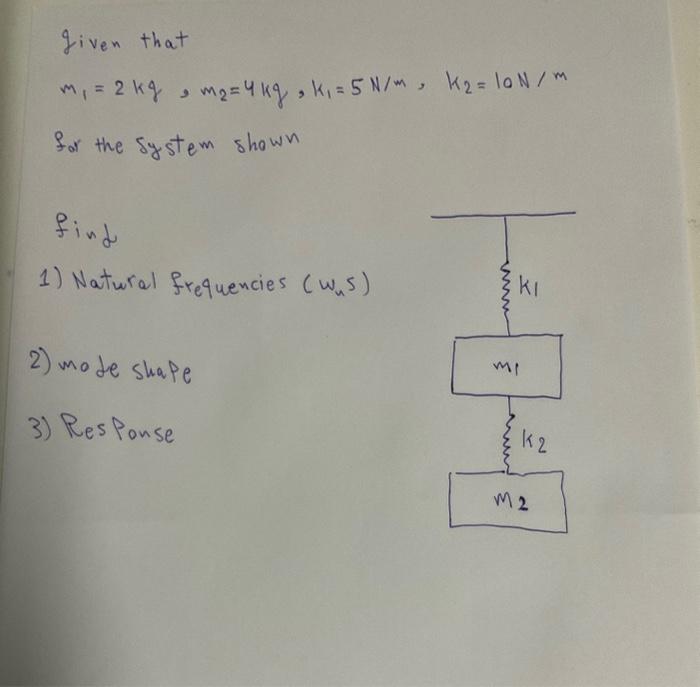 given that
m₁ = 2 kg , m₂=4 kg , K₁ = 5 N/m , K₂ = 10 N/m
for the system shown
find
1) Natural frequencies (wₙs)
K1
m1
2) mode shape
3) Response
K2
m2